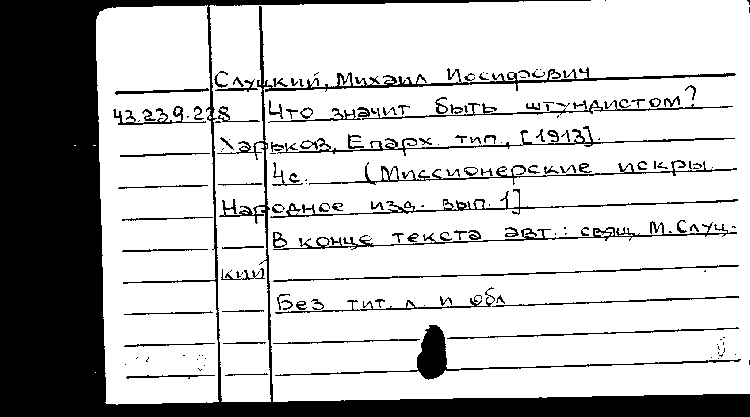 Слуцкий, Михаил Иосифович
43.23.9.228 Что значит быть штундистом?
Харьков, Епарх. тип., [1913].
4с. (Миссионерские искры.
Народное изд. вып. 1]
В конце текста авт.: свящ. М. Слуц-
кий
Без тит. л. и обл